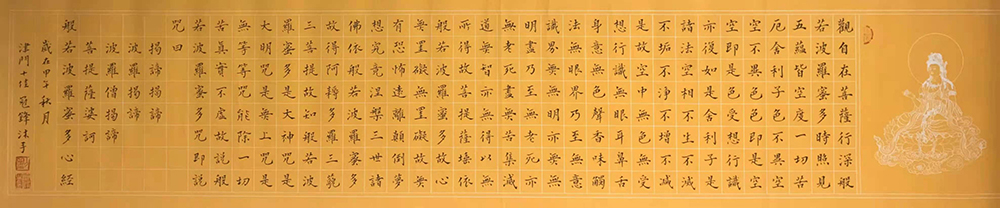 觀自在菩薩行深般
若波羅蜜多時照見
五蘊皆空度一切苦
厄舍利子色不異空
空不異色色即是空
空即是色受想行識
亦復如是舍利子是
諸法空相不生不滅
不垢不淨不增不減
是故空中無色無受
想行識無眼耳鼻舌
身意無色聲香味觸
法無眼界乃至無意
識界無無明亦無無
明盡乃至無老死亦
無老死盡無苦集滅
道無智亦無得以無
所得故菩提薩埵依
般若波羅蜜多故心
無罣礙無罣礙故無
有恐怖遠離顛倒夢
想究竟涅槃三世諸
佛依般若波羅蜜多
故得阿耨多羅三藐
三菩提故知般若波
羅蜜多是大神咒是
大明咒是無上咒是
無等等咒能除一切
苦真實不虛故說般
若波羅蜜多咒即說
咒曰
揭諦揭諦
波羅揭諦
波羅僧揭諦
菩提薩婆訶
般若波羅蜜多心經
歲在甲午秋月
津門十佳冠鋒沐手